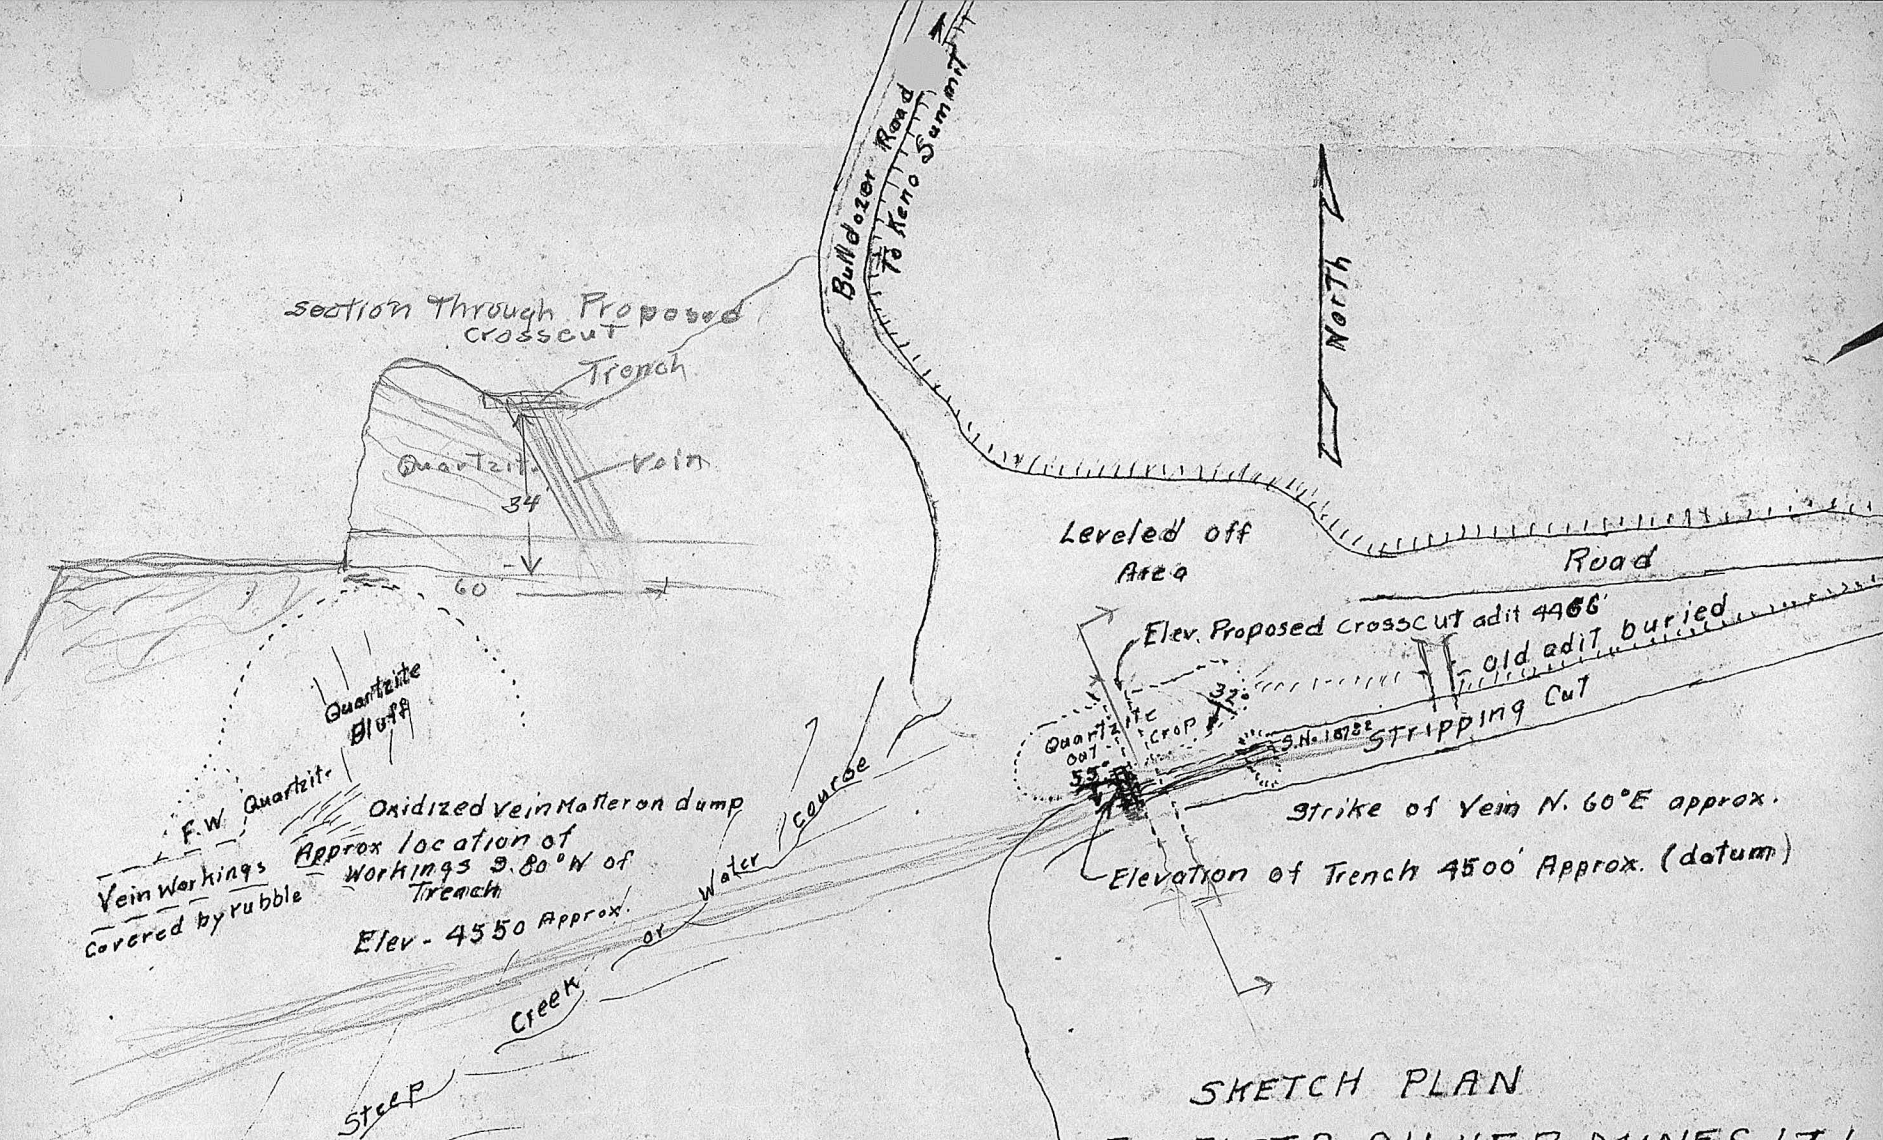 Bulldozer Road
To Keno Summit
North
Section Through Proposed
Crosscut
Trench
Quartzit.
Vein
34'
60'
Leveled off
Area
Road
Elev. Proposed Crosscut adit 4466'
old adit buried
Quartzite
Bluff
Quartzite
out
Crop
32°
55°
S.No. 18722
Stripping Cut
F.W. Quartzit.
Oxidized Vein Matter on dump
Vein Workings
Covered by rubble
Approx location of
Workings S.80°W of
Trench
Elev - 4550 Approx.
Strike of Vein N. 60°E approx.
Elevation of Trench 4500' Approx. (datum)
Steep Creek or Water Course
SKETCH PLAN
SILVER MINES LTD